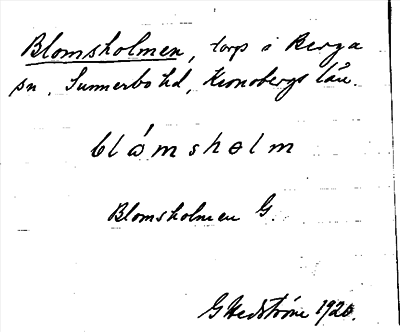 Blomsholmen, torp i Berga
sn, Sunnerbo hd, Kronobergs län.
blώmsholm
Blomsholmen G.
G Hedström 1920.